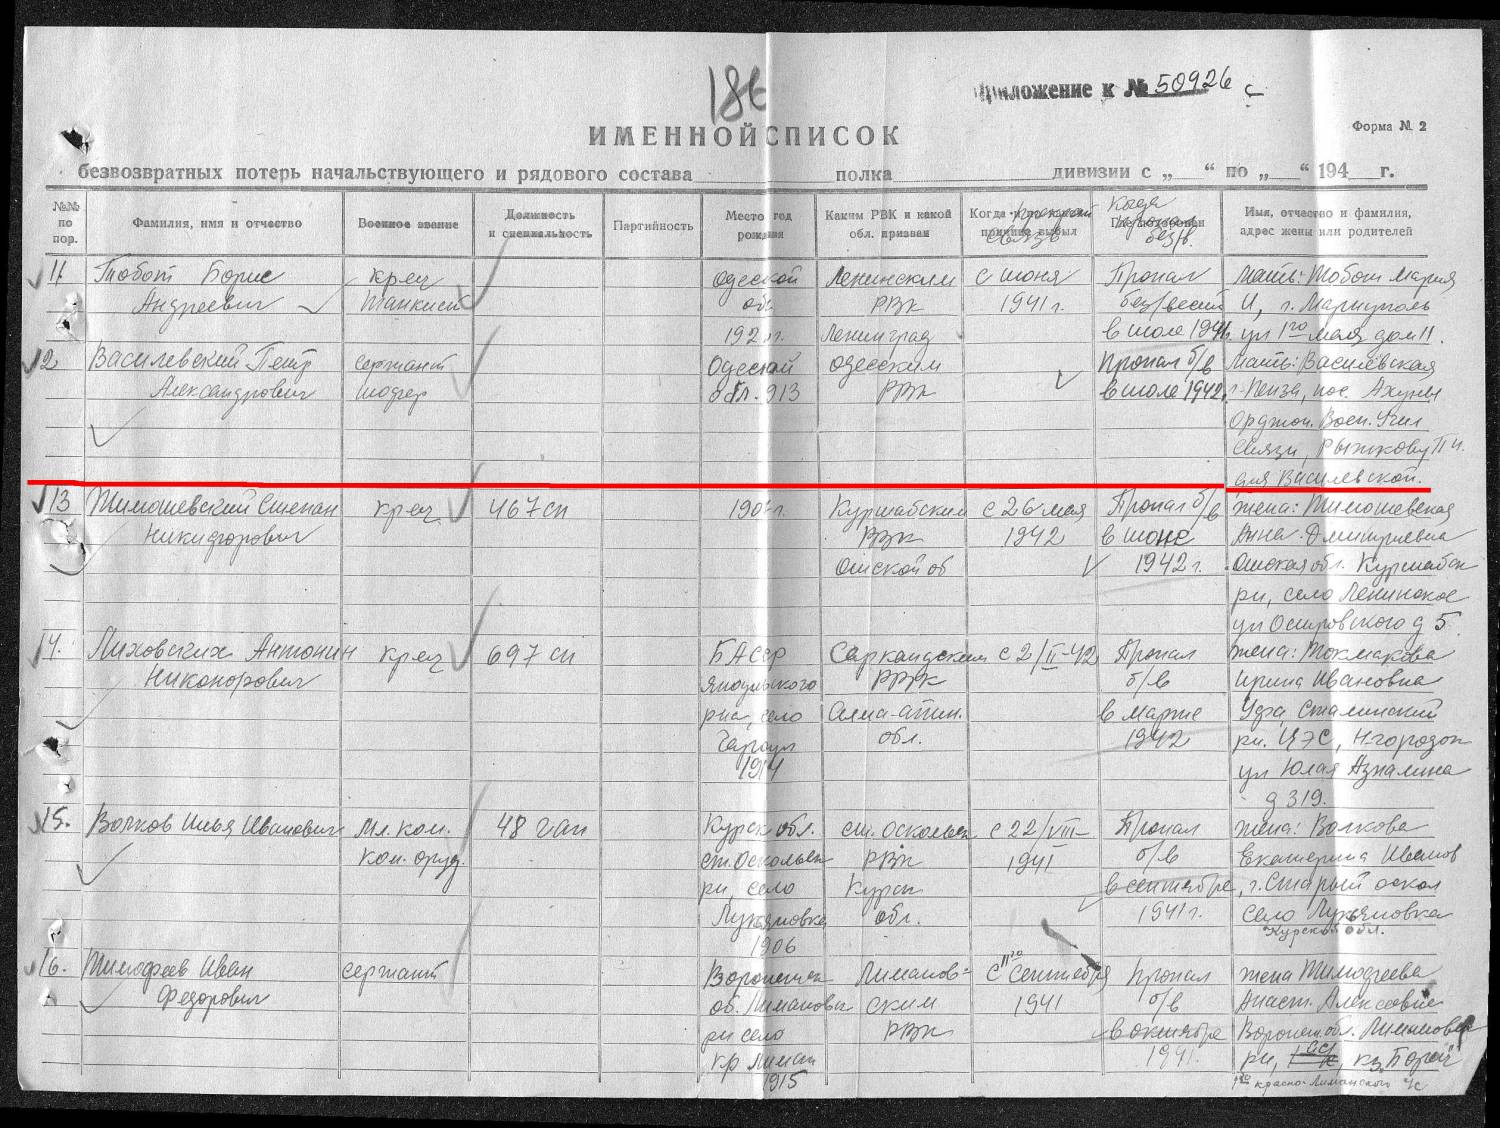 186
Приложение к № 50926 с
ИМЕННОЙ СПИСОК
Форма № 2
безвозвратных потерь начальствующего и рядового состава полка дивизии с „ “ по „ “ 194 г.
№№ по пор.
Фамилия, имя и отчество
Военное звание
Должность и специальность
Партийность
Место год рождения
Каким РВК и какой обл. призван
Когда и причине выбыл
связь
Где похоронен
Когда пропал без/в.
Имя, отчество и фамилия, адрес жены или родителей
11 Тобот Борис кр-ец Одесской Ленинским с июня Пропал мать: Тобот Мария
Андреевич танкист об. РВК 1941 г. без/вести И, г. Мариуполь
192 г. Ленинград в июле 194 ул 1го мая дом 11.
12 Василевский Петр сержант Одесской одесским Пропал б/в мать: Василевская
Александрович шофер обл. 913 РВК в июле 1942. г. Пенза, пос. Ахуны
Орджон. Воен. Учил
Связи, Рыжкову П И.
для Василевской.
13 Тимошевский Степан кр-ец 467 сп 190 г. Куршабским с 26 мая Пропал б/в жена: Тимошевская
Никифорович РВК 1942 в июне Анна Дмитриевна
Ошской об 1942 г. Ошская обл. Куршабск
р-н, село Ленинское
ул Островского д 5
14. Лиховских Антонин кр-ец 697 сп БАССР Саркандским с 2/II-42 Пропал жена: Токмакова
Никонорович РВК б/в Ирина Ивановна
р-на, село Алма-атин. в марте Уфа, Сталинский
обл. 1942 р-н. ЦЭС, Н-городок
1914 ул Юлая Азналина
д 319.
15. Волков Илья Иванович Мл. ком. 48 гап Курск обл. ст. оскольск с 22/VIII- Пропал жена: Волкова
ком. оруд. ст. Оскольск РВК 1941 б/в Екатерина Иванов
р-н, село Курск в сентябре, г. Старый оскол
Лукьяновка обл. 1941 г. село Лукьяновка
1906 Курской обл.
16. Тимофеев Иван сержант Воронежск Лиманов- с 11го сентября Пропал жена Тимофеева
Федорович об. Лимановск ским 1941 б/в Анаст. Алексеевна
р-н село РВК в октябре Воронеж обл. Лимановск
кр Лиман 1941. р-н, кз
1915 1го красно-Лиманского с/с